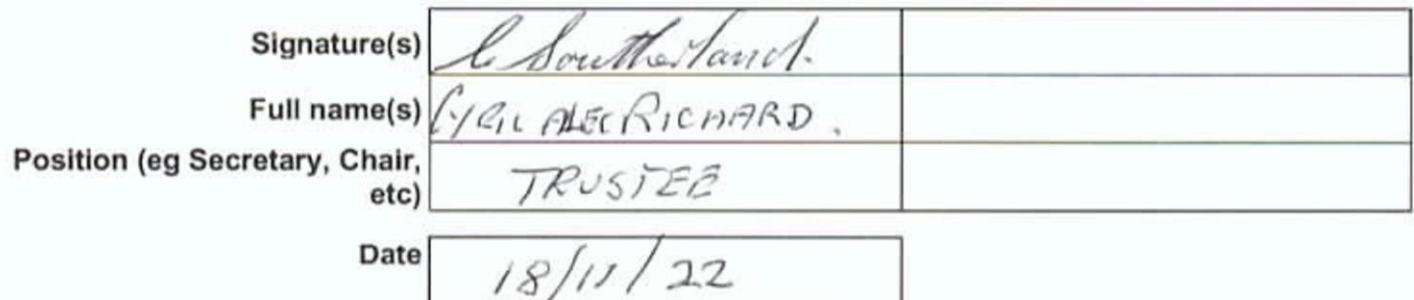 Signature(s) C Southerland.
Full name(s) CYRIL ALEC RICHARD.
Position (eg Secretary, Chair,
etc) TRUSTEE
Date 18/11/22